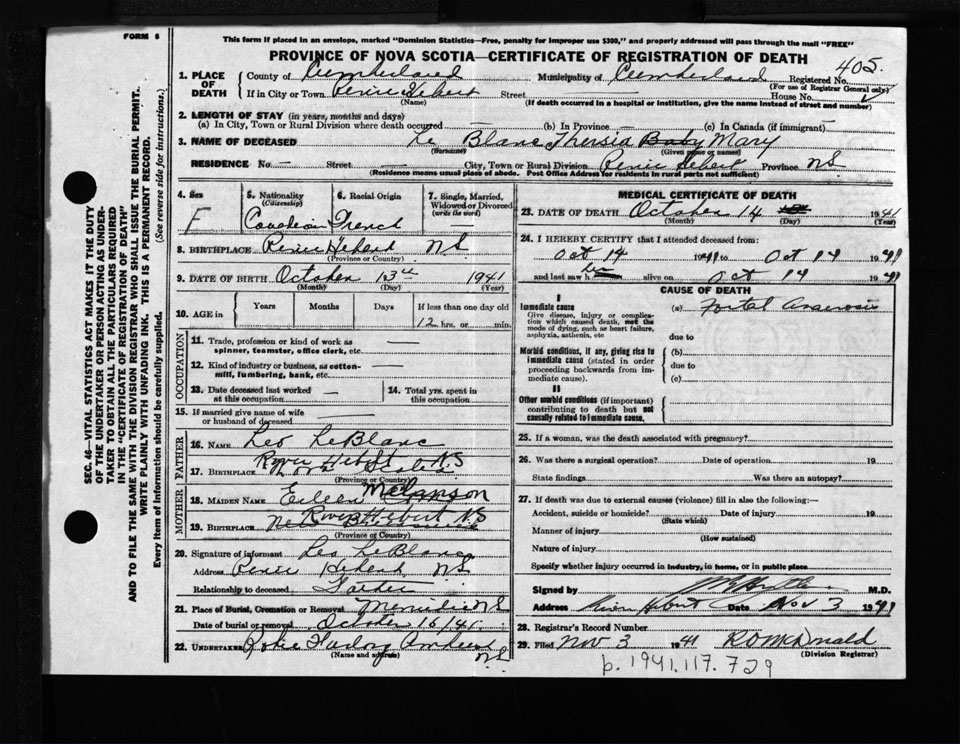 FORM 6
This form if placed in an envelope, marked "Dominion Statistics—Free, penalty for improper use $300," and properly addressed will pass through the mail "FREE"
PROVINCE OF NOVA SCOTIA—CERTIFICATE OF REGISTRATION OF DEATH
405.
1. PLACE OF DEATH
County of Cumberland Municipality of Cumberland Registered No.
(For use of Registrar General only)
If in City or Town River Hebert Street House No.
(Name) (If death occurred in a hospital or institution, give the name instead of street and number)
2. LENGTH OF STAY (in years, months and days)
(a) In City, Town or Rural Division where death occurred — (b) In Province — (c) In Canada (if immigrant) —
3. NAME OF DECEASED Le Blanc Theresia Baby Mary
(Surname) (Given name or names)
RESIDENCE No. — Street — City, Town or Rural Division River Hebert Province N.S.
(Residence means usual place of abode. Post Office Address for residents in rural parts not sufficient)
4. Sex F
5. Nationality (Citizenship) Canadian
6. Racial Origin French
7. Single, Married, Widowed or Divorced (write the word) —
8. BIRTHPLACE River Hebert N.S.
(Province or Country)
9. DATE OF BIRTH October 13th 1941
(Month) (Day) (Year)
10. AGE in Years Months Days If less than one day old
12 hrs. or min.
OCCUPATION
11. Trade, profession or kind of work as spinner, teamster, office clerk, etc. —
12. Kind of industry or business, as cotton-mill, lumbering, bank, etc. —
13. Date deceased last worked at this occupation —
14. Total yrs. spent in this occupation
15. If married give name of wife or husband of deceased —
FATHER
16. NAME Leo LeBlanc
17. BIRTHPLACE River Hebert N.S.
(Province or Country)
MOTHER
18. MAIDEN NAME Eileen
19. BIRTHPLACE River Hebert N.S.
(Province or Country)
20. Signature of informant Leo LeBlanc
Address River Hebert, N.S.
Relationship to deceased Father
21. Place of Burial, Cremation or Removal N.S.
Date of burial or removal October 16/41.
22. UNDERTAKER Amherst
(Name and address) N.S.
MEDICAL CERTIFICATE OF DEATH
23. DATE OF DEATH October 14 1941
(Month) (Day) (Year)
24. I HEREBY CERTIFY that I attended deceased from:
Oct 14 1941 to Oct 14 1941
and last saw h alive on Oct 14 1941
CAUSE OF DEATH
I
Immediate cause (a)
Give disease, injury or complication which caused death, not the mode of dying, such as heart failure, asphyxia, asthenia, etc
due to
Morbid conditions, if any, giving rise to immediate cause (stated in order proceeding backwards from immediate cause). (b)
due to
(c)
II
Other morbid conditions (if important) contributing to death but not causally related to immediate cause.
25. If a woman, was the death associated with pregnancy?
26. Was there a surgical operation? Date of operation 19
State findings Was there an autopsy?
27. If death was due to external causes (violence) fill in also the following:—
Accident, suicide or homicide? Date of injury 19
(State which)
Manner of injury
(How sustained)
Nature of injury
Specify whether injury occurred in industry, in home, or in public place
Signed by M.D.
Address River Hebert Date Nov 3 1941
28. Registrar's Record Number
29. Filed Nov 3 1941 R O McDonald
(Division Registrar)
p. 1941.117.729
SEC. 46—VITAL STATISTICS ACT MAKES IT THE DUTY
OF THE UNDERTAKER OR PERSON ACTING AS UNDER-
TAKER TO OBTAIN ALL THE PARTICULARS REQUIRED
IN THE "CERTIFICATE OF REGISTRATION OF DEATH"
AND TO FILE THE SAME WITH THE DIVISION REGISTRAR WHO SHALL ISSUE THE BURIAL PERMIT.
WRITE PLAINLY WITH UNFADING INK. THIS IS A PERMANENT RECORD.
Every item of Information should be carefully supplied. (See reverse side for instructions.)